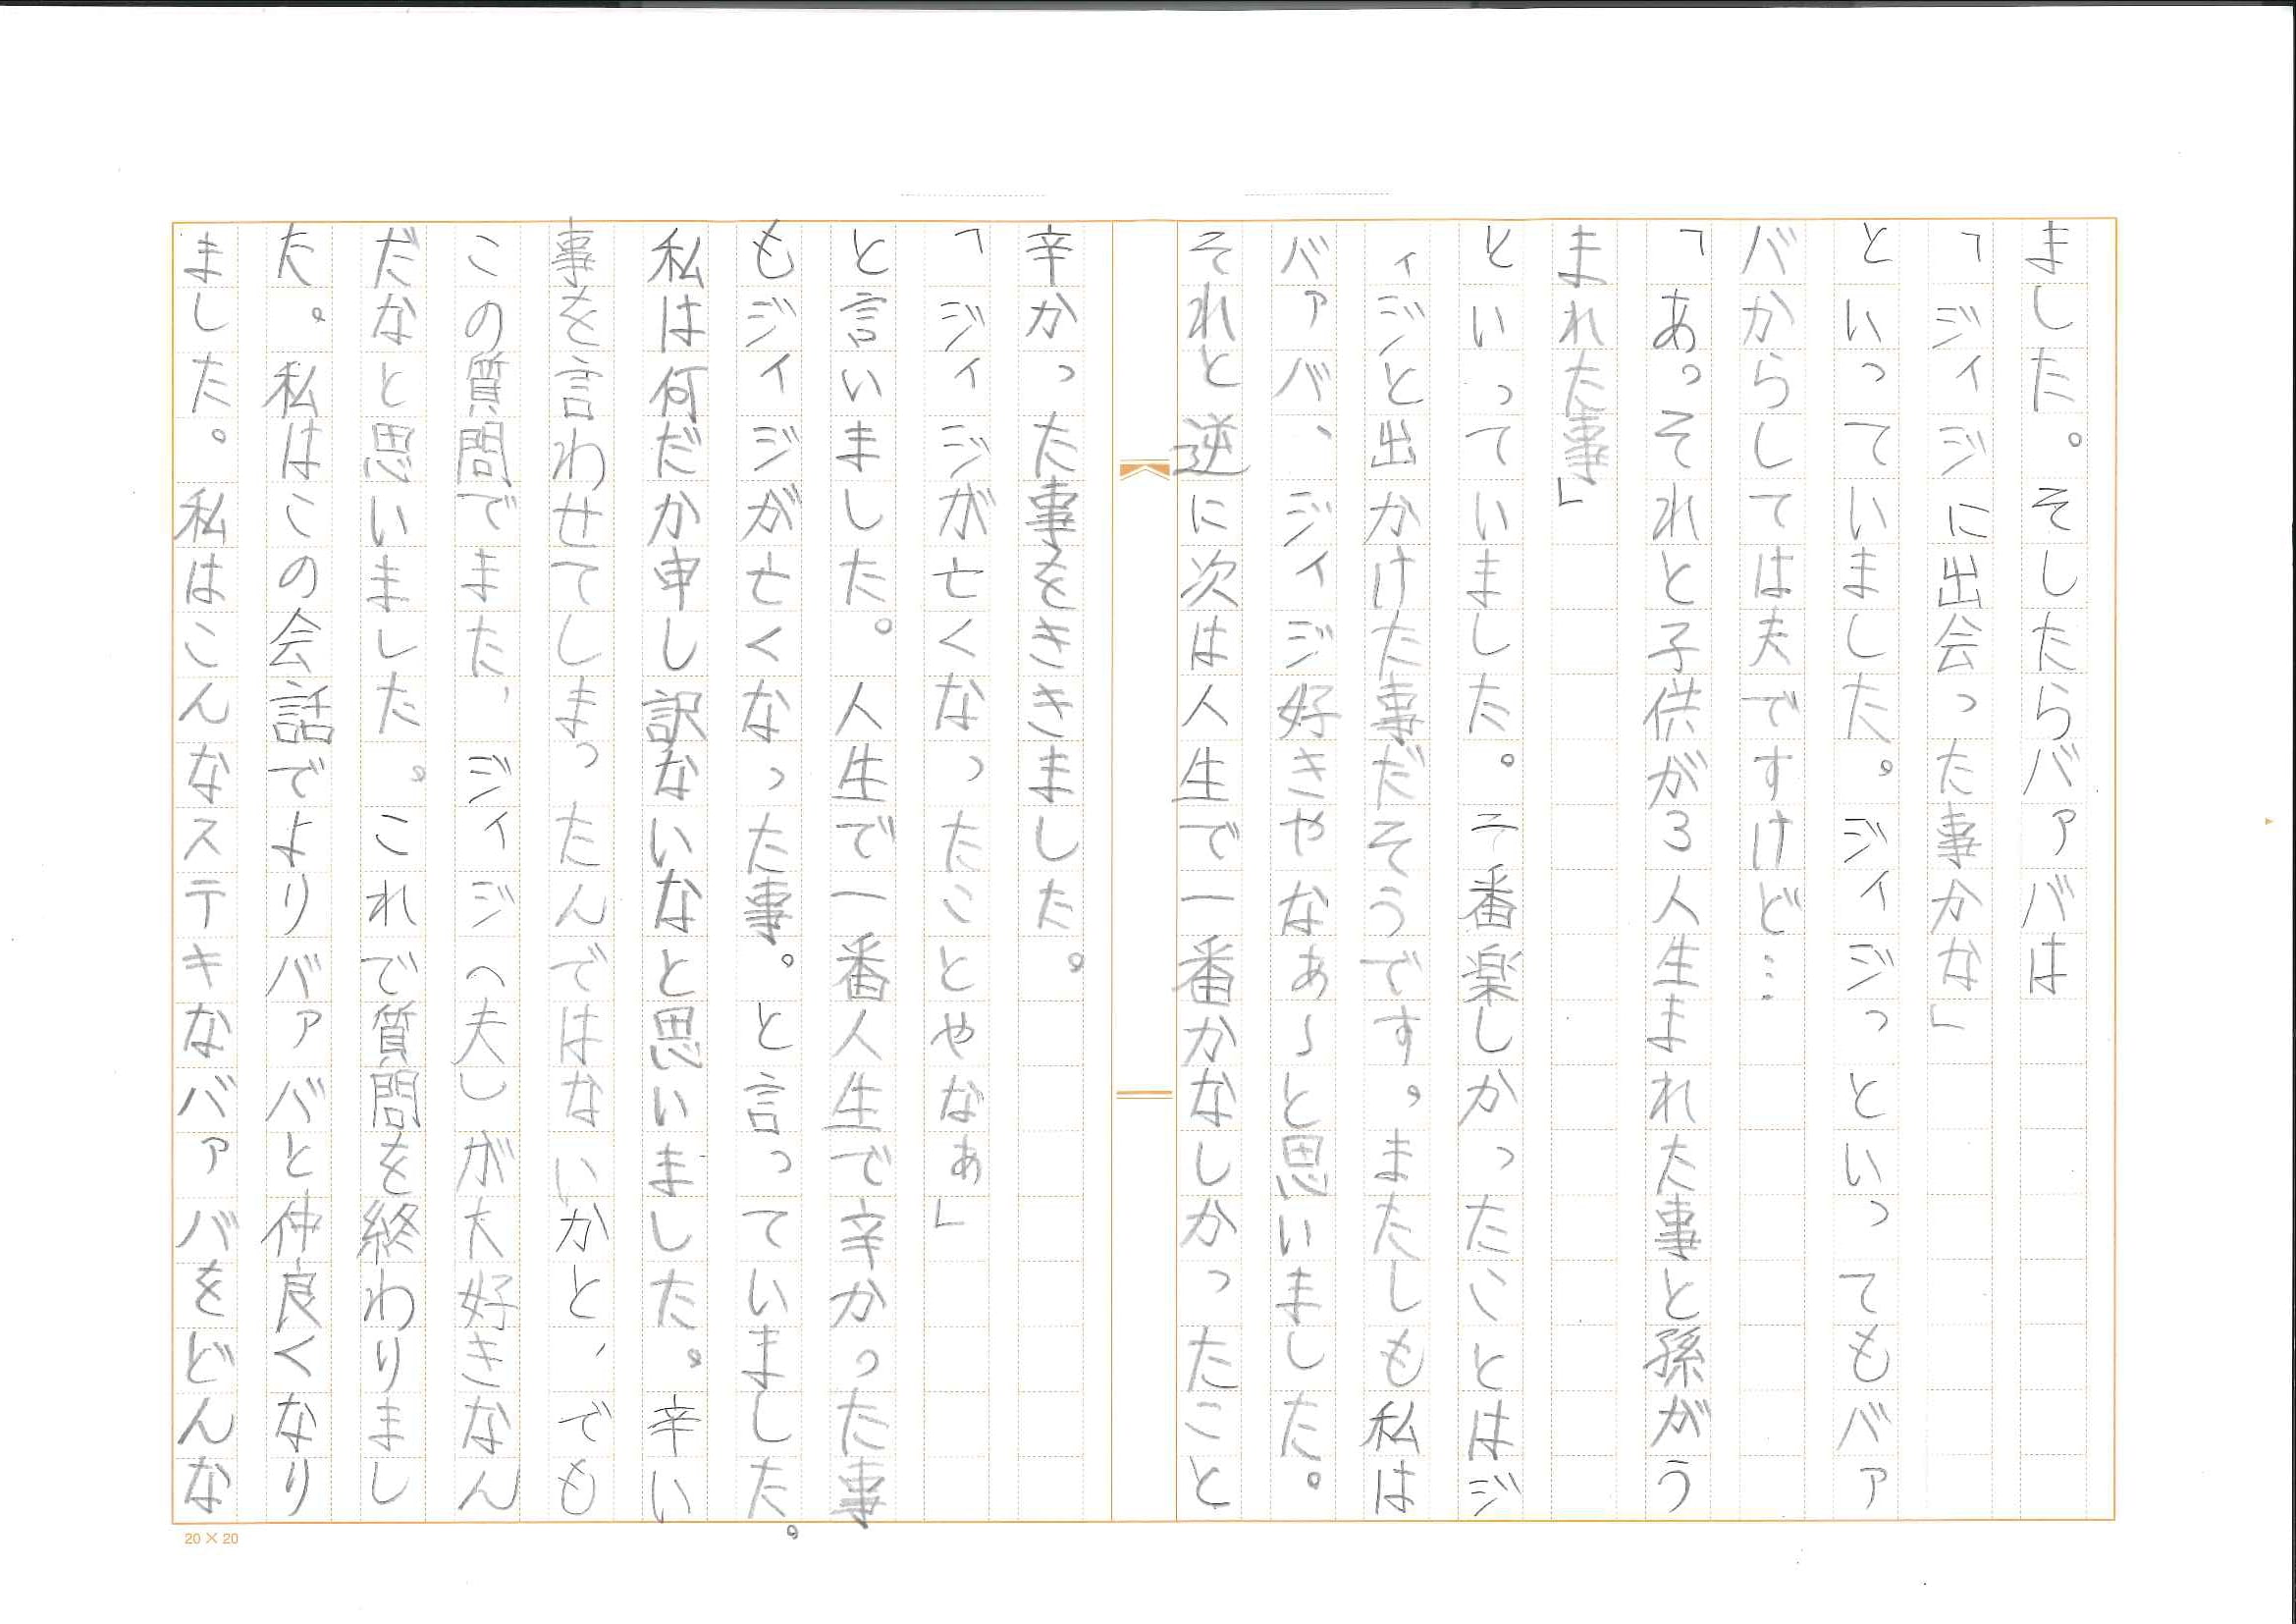 ました。そしたらバァバは
「ジィジに出会った事かな」
といっていました。ジィジっといってもバァ
バからしては夫ですけど…
「あっそれと子供が3人生まれた事と孫がう
まれた事」
といっていました。二番楽しかったことはジ
ィジと出かけた事だそうです。またしも私は
バァバ、ジィジ好きやなぁ〜と思いました。
それと逆に次は人生で一番かなしかったこと
辛かった事をききました。
「ジィジが亡くなったことやなぁ」
と言いました。人生で一番人生で辛かった事
もジィジが亡くなった事。と言っていました。
私は何だか申し訳ないなと思いました。辛い
事を言わせてしまったんではないかと、でも
この質問でまた、ジィジへ夫しが大好きなん
だなと思いました。これで質問を終わりまし
た。私はこの会話でよりバァバと仲良くなり
ました。私はこんなステキなバァバをどんな
20×20